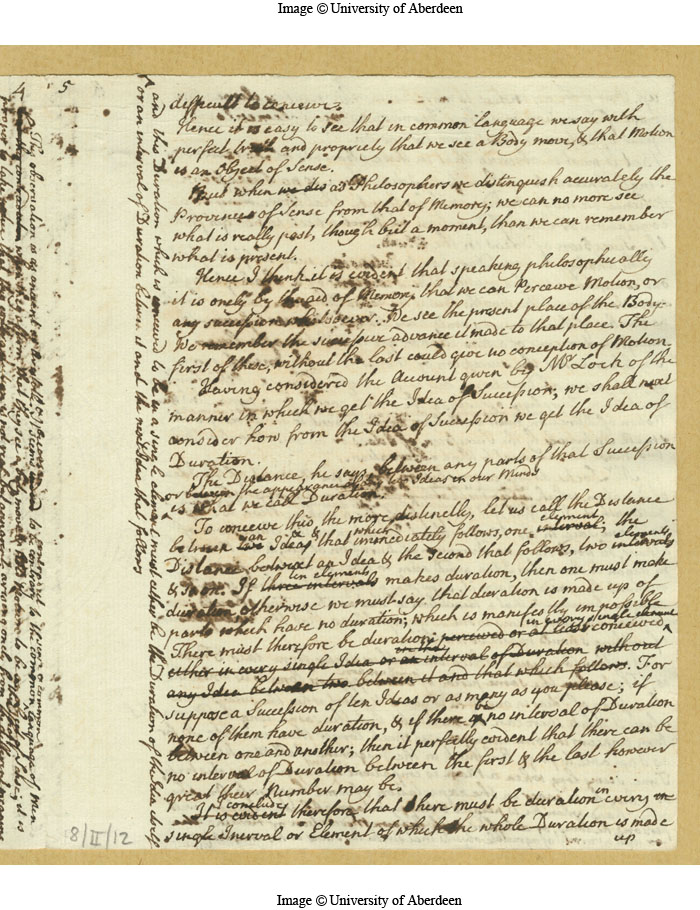 Image © University of Aberdeen
4
5
difficult to conceive.
Hence it is easy to see that in common language we say with
perfect truth and propriety that we see a Body move, & that Motion
is an Object of Sense.
But when we dis as Philosophers we distinguish accurately the
Province of Sense from that of Memory; we can no more see
what is really past, though but a moment, than we can remember
what is present.
Hence I think it is evident that speaking philosophically
it is onely by the aid of Memory, that we can Perceive Motion, or
any succession whatsoever. We see the present place of the Body
We remember the successive advance it made to that place. The
first of these, without the last could give no conception of Motion
Having considered the Account given by Mr Lock of the
manner in which we get the Idea of Succession; we shall next
consider how from the Idea of Succession we get the Idea of
Duration.
The Distance, he says, between any parts of that Succession
or between the appearance of two Ideas in our Minds
is what we call Duration.
To conceive this the more distinctly, let us call the Distance
an & which element,
between two Ideas & that immediately follows, one interval; the
Distance between an Idea & the second that follows, two intervals elements
& so on. If three intervals ten elements makes duration, then one must make
duration, otherwise we must say that duration is made up of
parts which have no duration; which is manifestly impossible
in every single element
There must therefore be duration perceived or at least conceived
either in every single Idea or an interval of Duration without
any Idea between two between it and that which follows. For
suppose a Succession of ten Ideas or as many as you please; if
none of them have duration, & if there be no interval of Duration
between one and another; then it perfectly evident that there can be
no interval of Duration between the first & the last however
great their Number may be.
I conclude
It is evident therefore that there must be duration in every
single Interval or Element of which the whole Duration is made
up
and this Duration which is conceived to be in a single element must either be the Duration of the Idea itself
or an interval of Duration between it and the next Idea that follows
8/II/12
Image © University of Aberdeen